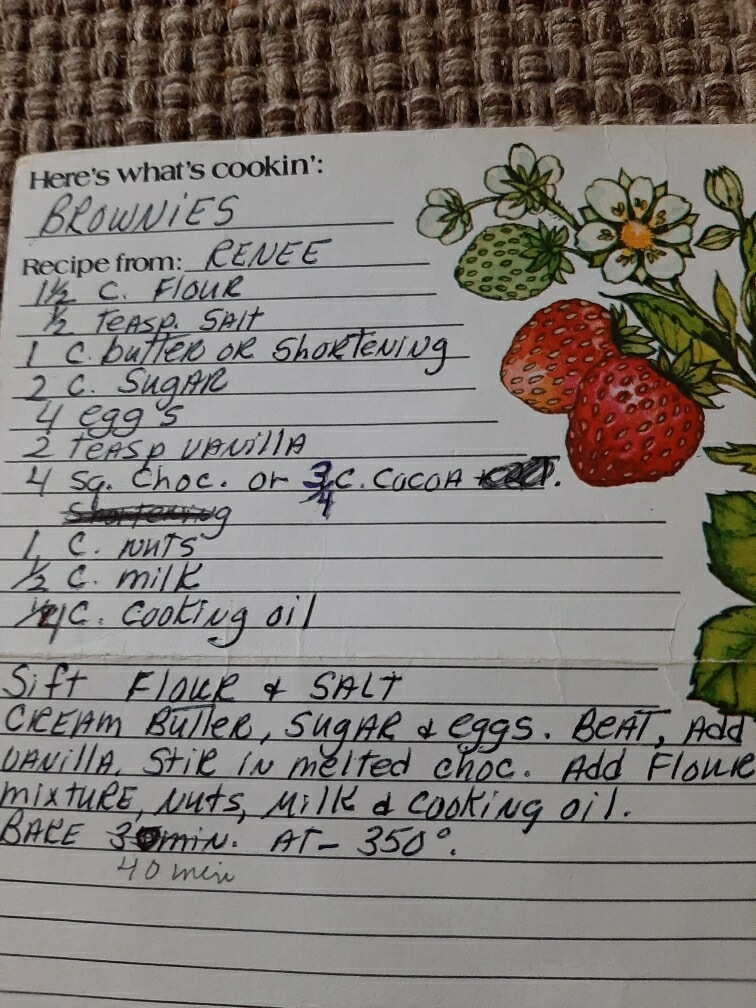 Here's what's cookin':
BROWNiES
Recipe from: RENEE
1½ C. FlOUR
½ TEASP. SAlt
1 C. buttER OR ShORTENiNg
2 C. SUgAR
4 egg's
2 TEASP VANillA
4 Sq. Choc. or 3/4 C. COCOA
Shortening
1 C. NUTS
½ C. milk
1/4 C. Cooking oil
Sift FlOUR & SALT
CREAM BUTTER, SUgAR & eggs. BEAT, Add
VANillA. STiR iN mElted choc. Add FlOUR
miXTURE, NUTS, MilK & COOKiNg oil.
BAKE 30 min. AT- 350°.
40 min